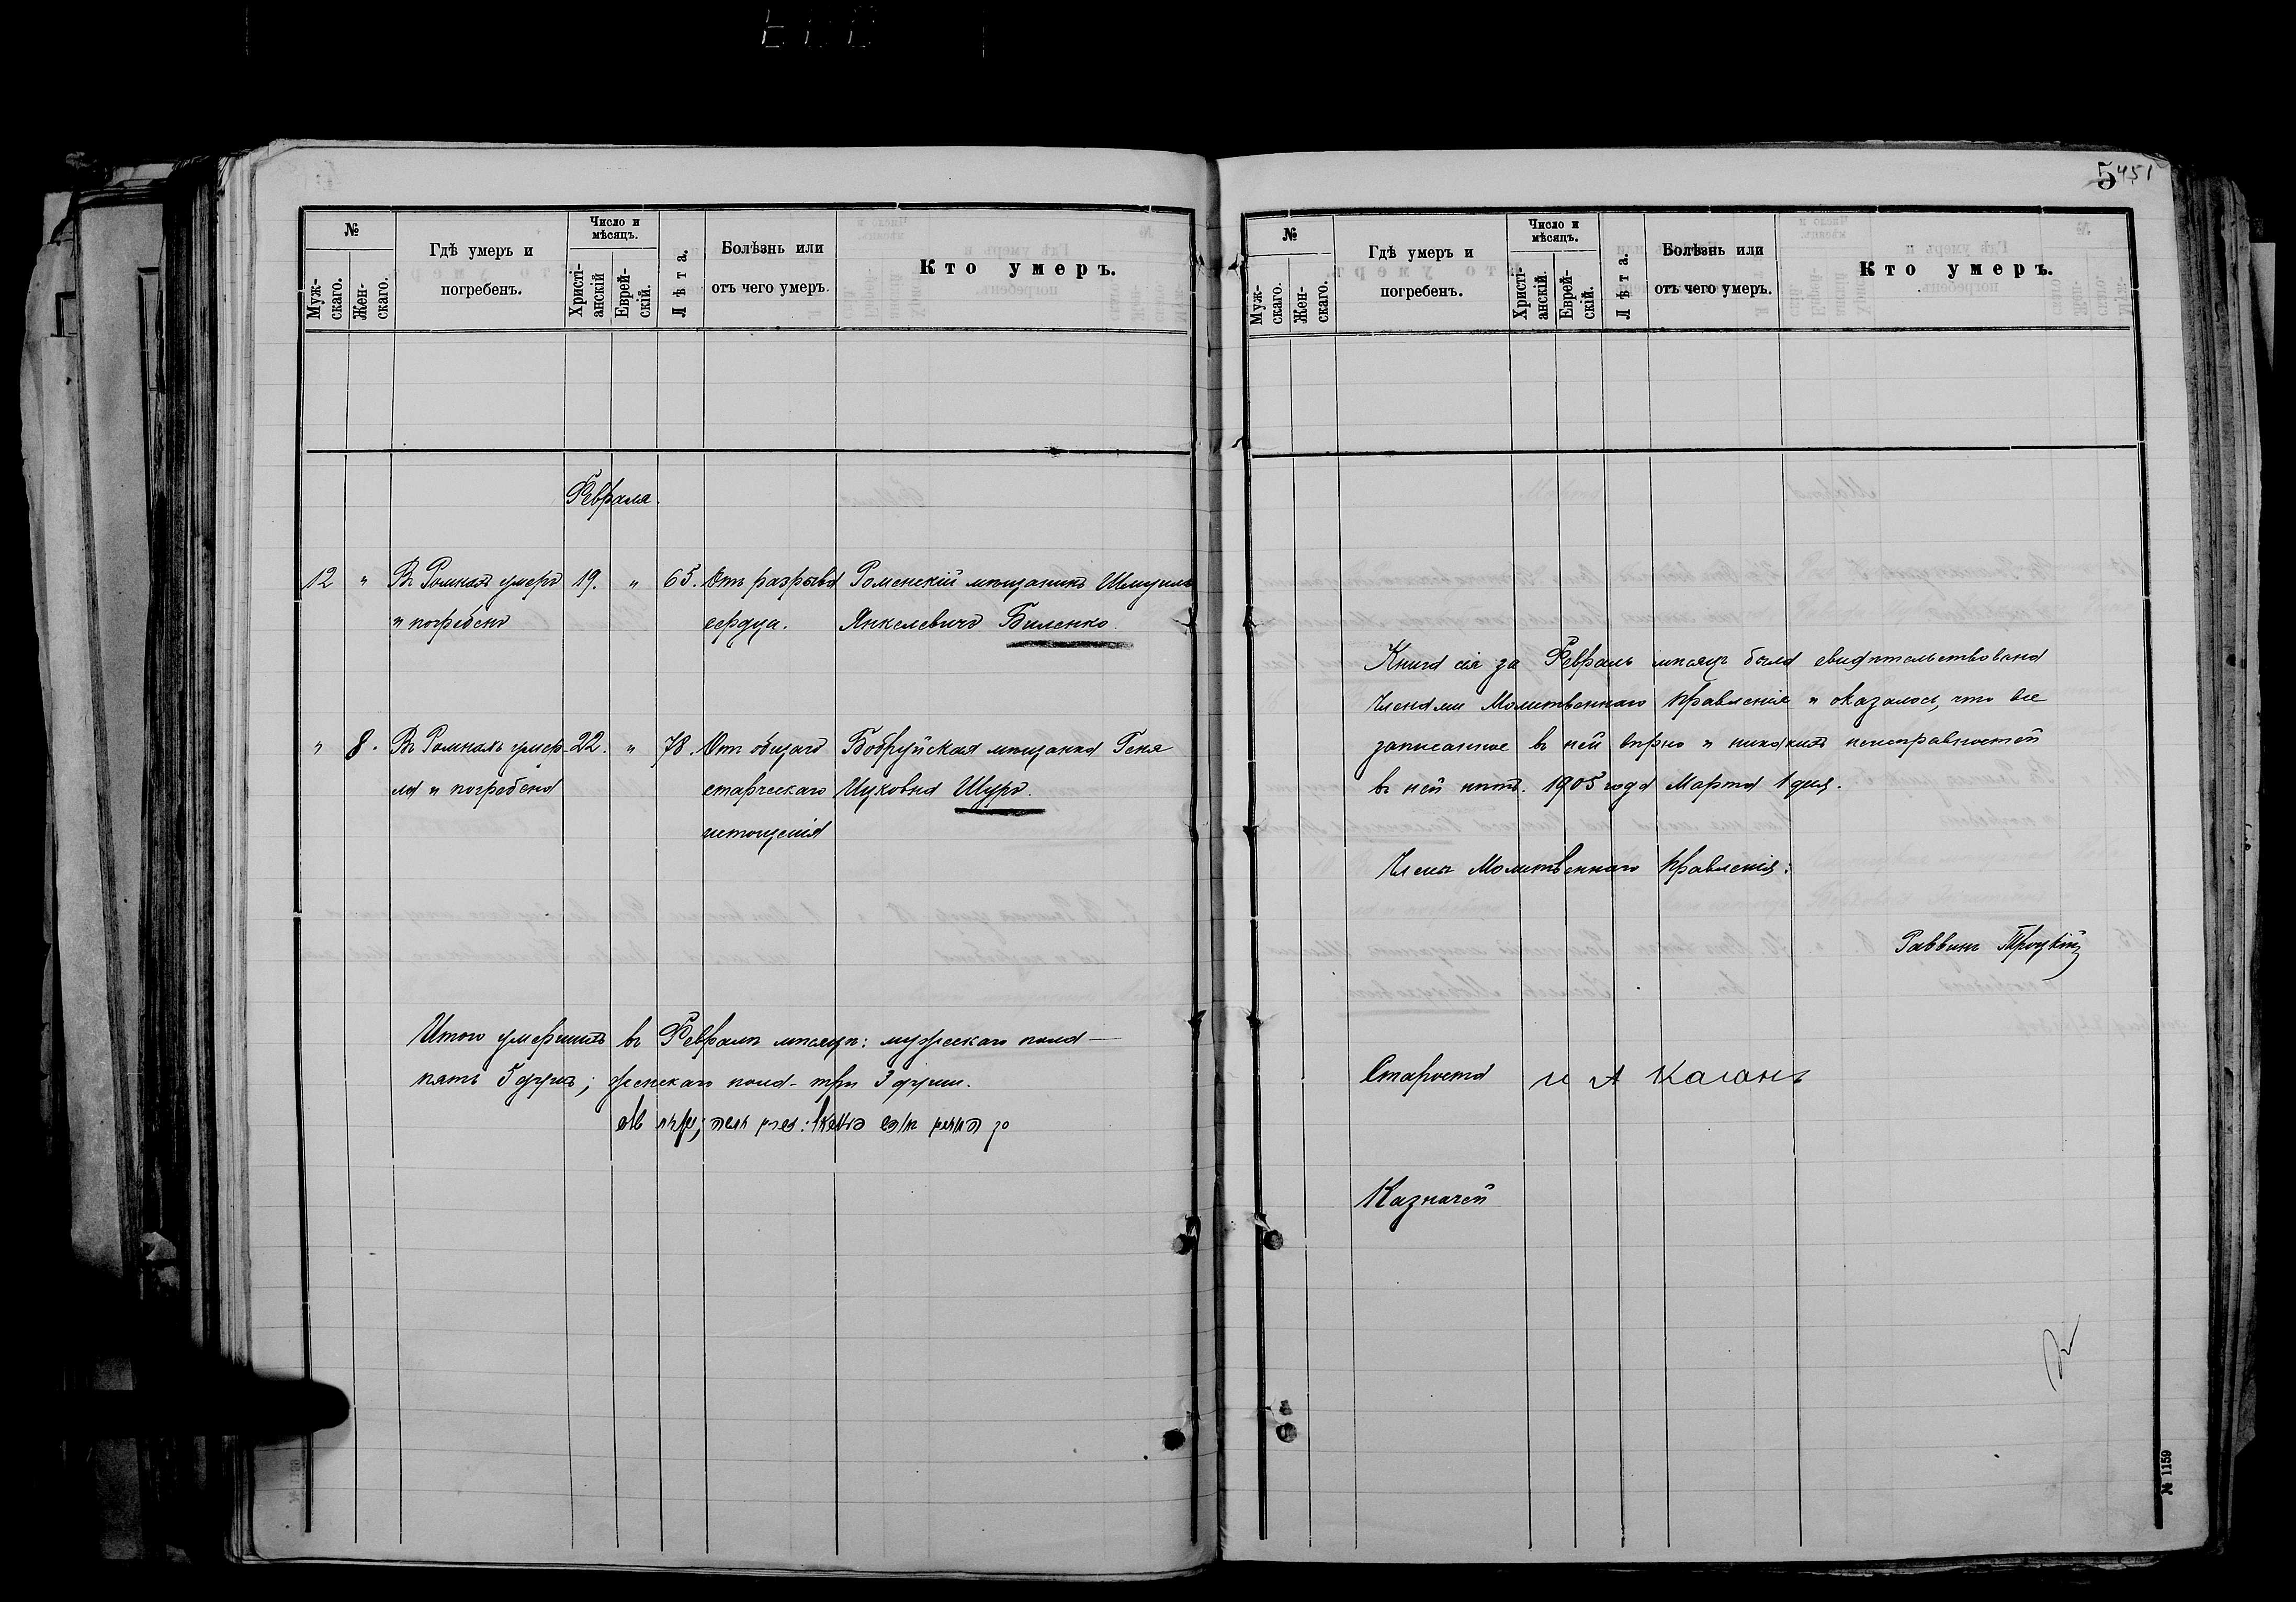 5 451
№
Муж-
скаго.
Жен-
скаго.
Гдѣ умеръ и
погребенъ.
Число и
мѣсяцъ.
Христі-
анскій
Еврей-
скій.
Лѣта.
Болѣзнь или
отъ чего умеръ.
Кто умеръ.
Февраля.
12 " Въ Ромнахъ умеръ 19. " 65. Отъ разрыва Роменскій мѣщанинъ Шмуиль
и погребенъ сердца. Янкелевичъ Биленко.
" 8. Въ Ромнахъ умер- 22. " 78. Отъ общаго Бобруйская мѣщанка Геня
ла и погребена старческаго Ицковна Шуръ.
истощенія
Итого умершихъ въ Февралѣ мѣсяцѣ: мужескаго пола —
пять 5 душъ; женскаго пола - три 3 души.
№
Муж-
скаго.
Жен-
скаго.
Гдѣ умеръ и
погребенъ.
Число и
мѣсяцъ.
Христі-
анскій.
Еврей-
скій.
Лѣта.
Болѣзнь или
отъ чего умеръ.
Кто умеръ.
Книга сія за Февраль мѣсяцъ была свидѣтельствована
Членами Молитвеннаго Правленія и оказалось, что все
записанное въ ней вѣрно и никакихъ неисправностей
въ ней нѣтъ. 1905 года Марта 1 дня.
Члены Молитвеннаго Правленія:
Раввинъ Троцкій
Староста И А Каганъ
Казначей
№ 1159